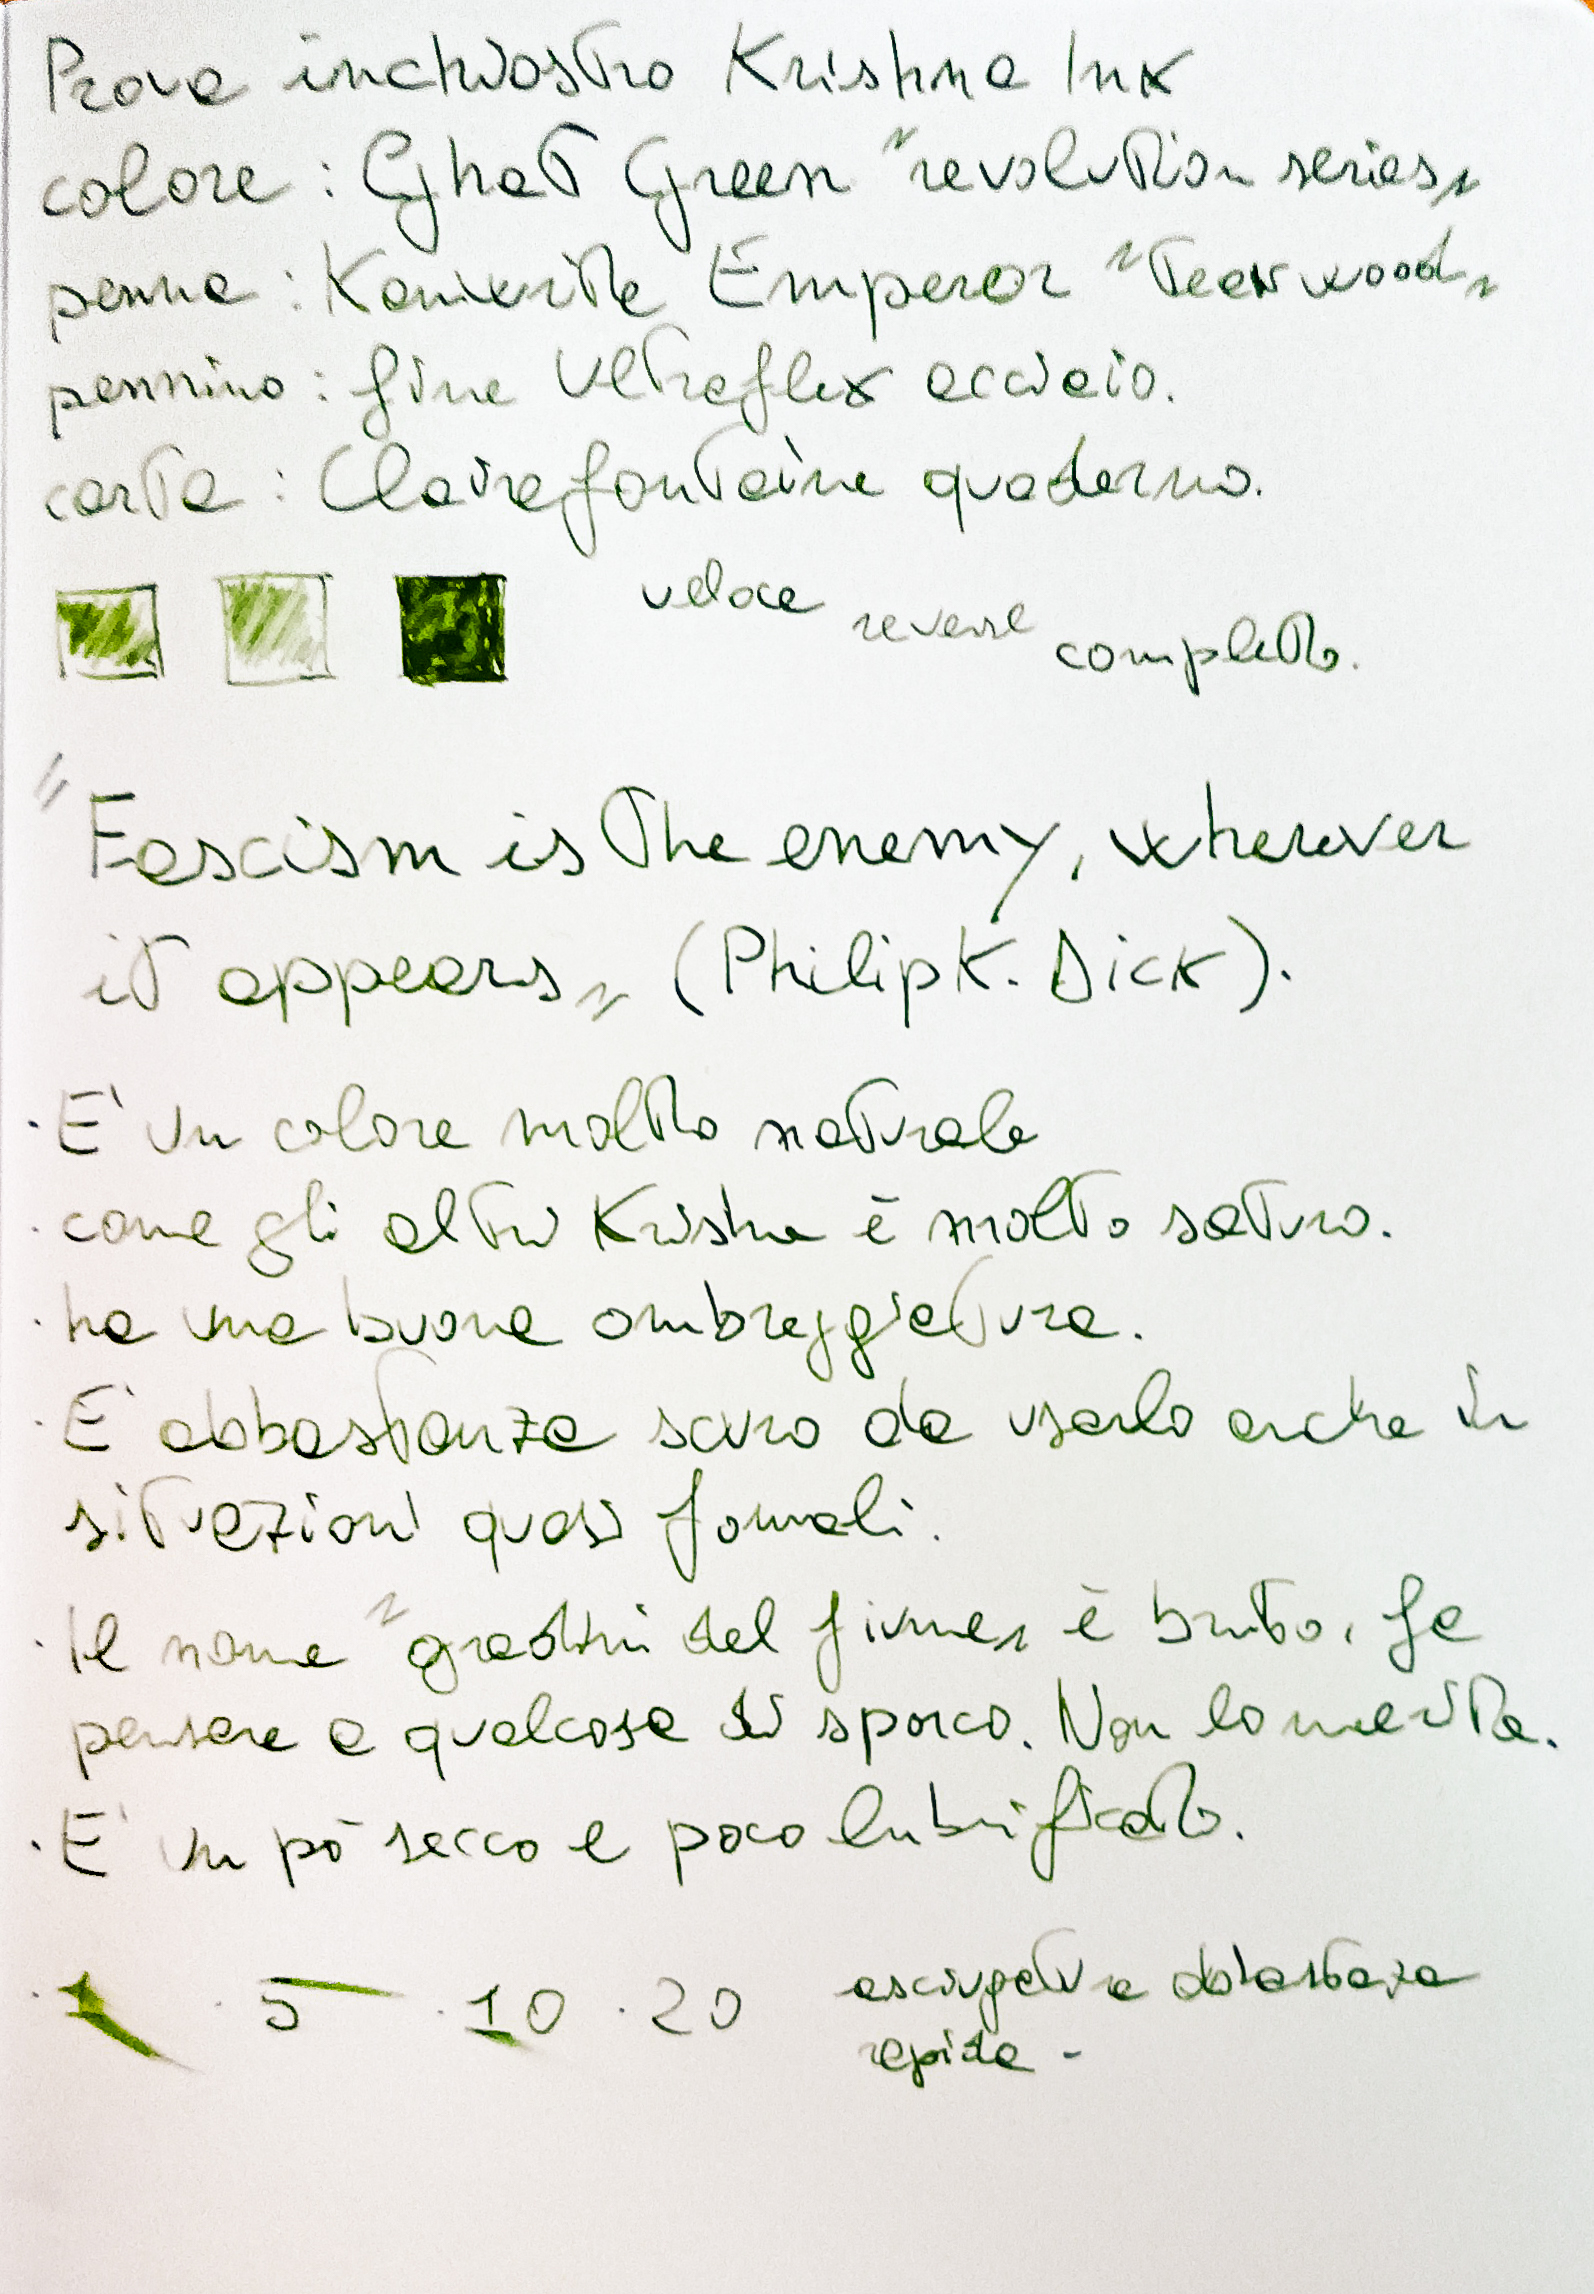 Prova inchiostro Krishna Ink
colore : Ghat Green "revolution series"
penna : Kanwrite Emperor "Teakwood"
pennino : fine Ultraflex acciaio.
carta : Clairefontaine quaderno.
veloce reverse completo.
"Fascism is the enemy, wherever
it appears" (Philip K. Dick).
· E' un colore molto naturale
· come gli altri Krishna è molto saturo.
· ha una buona ombreggiatura.
· E' abbastanza scuro da usarlo anche in
situazioni quasi formali.
· Il nome "gradini del fiume" è brutto. Fa
pensare a qualcosa di sporco. Non lo merita.
· E' un pò secco e poco lubrificato.
· 1 · 5 · 10 · 20 asciugatura abbastanza
rapida -